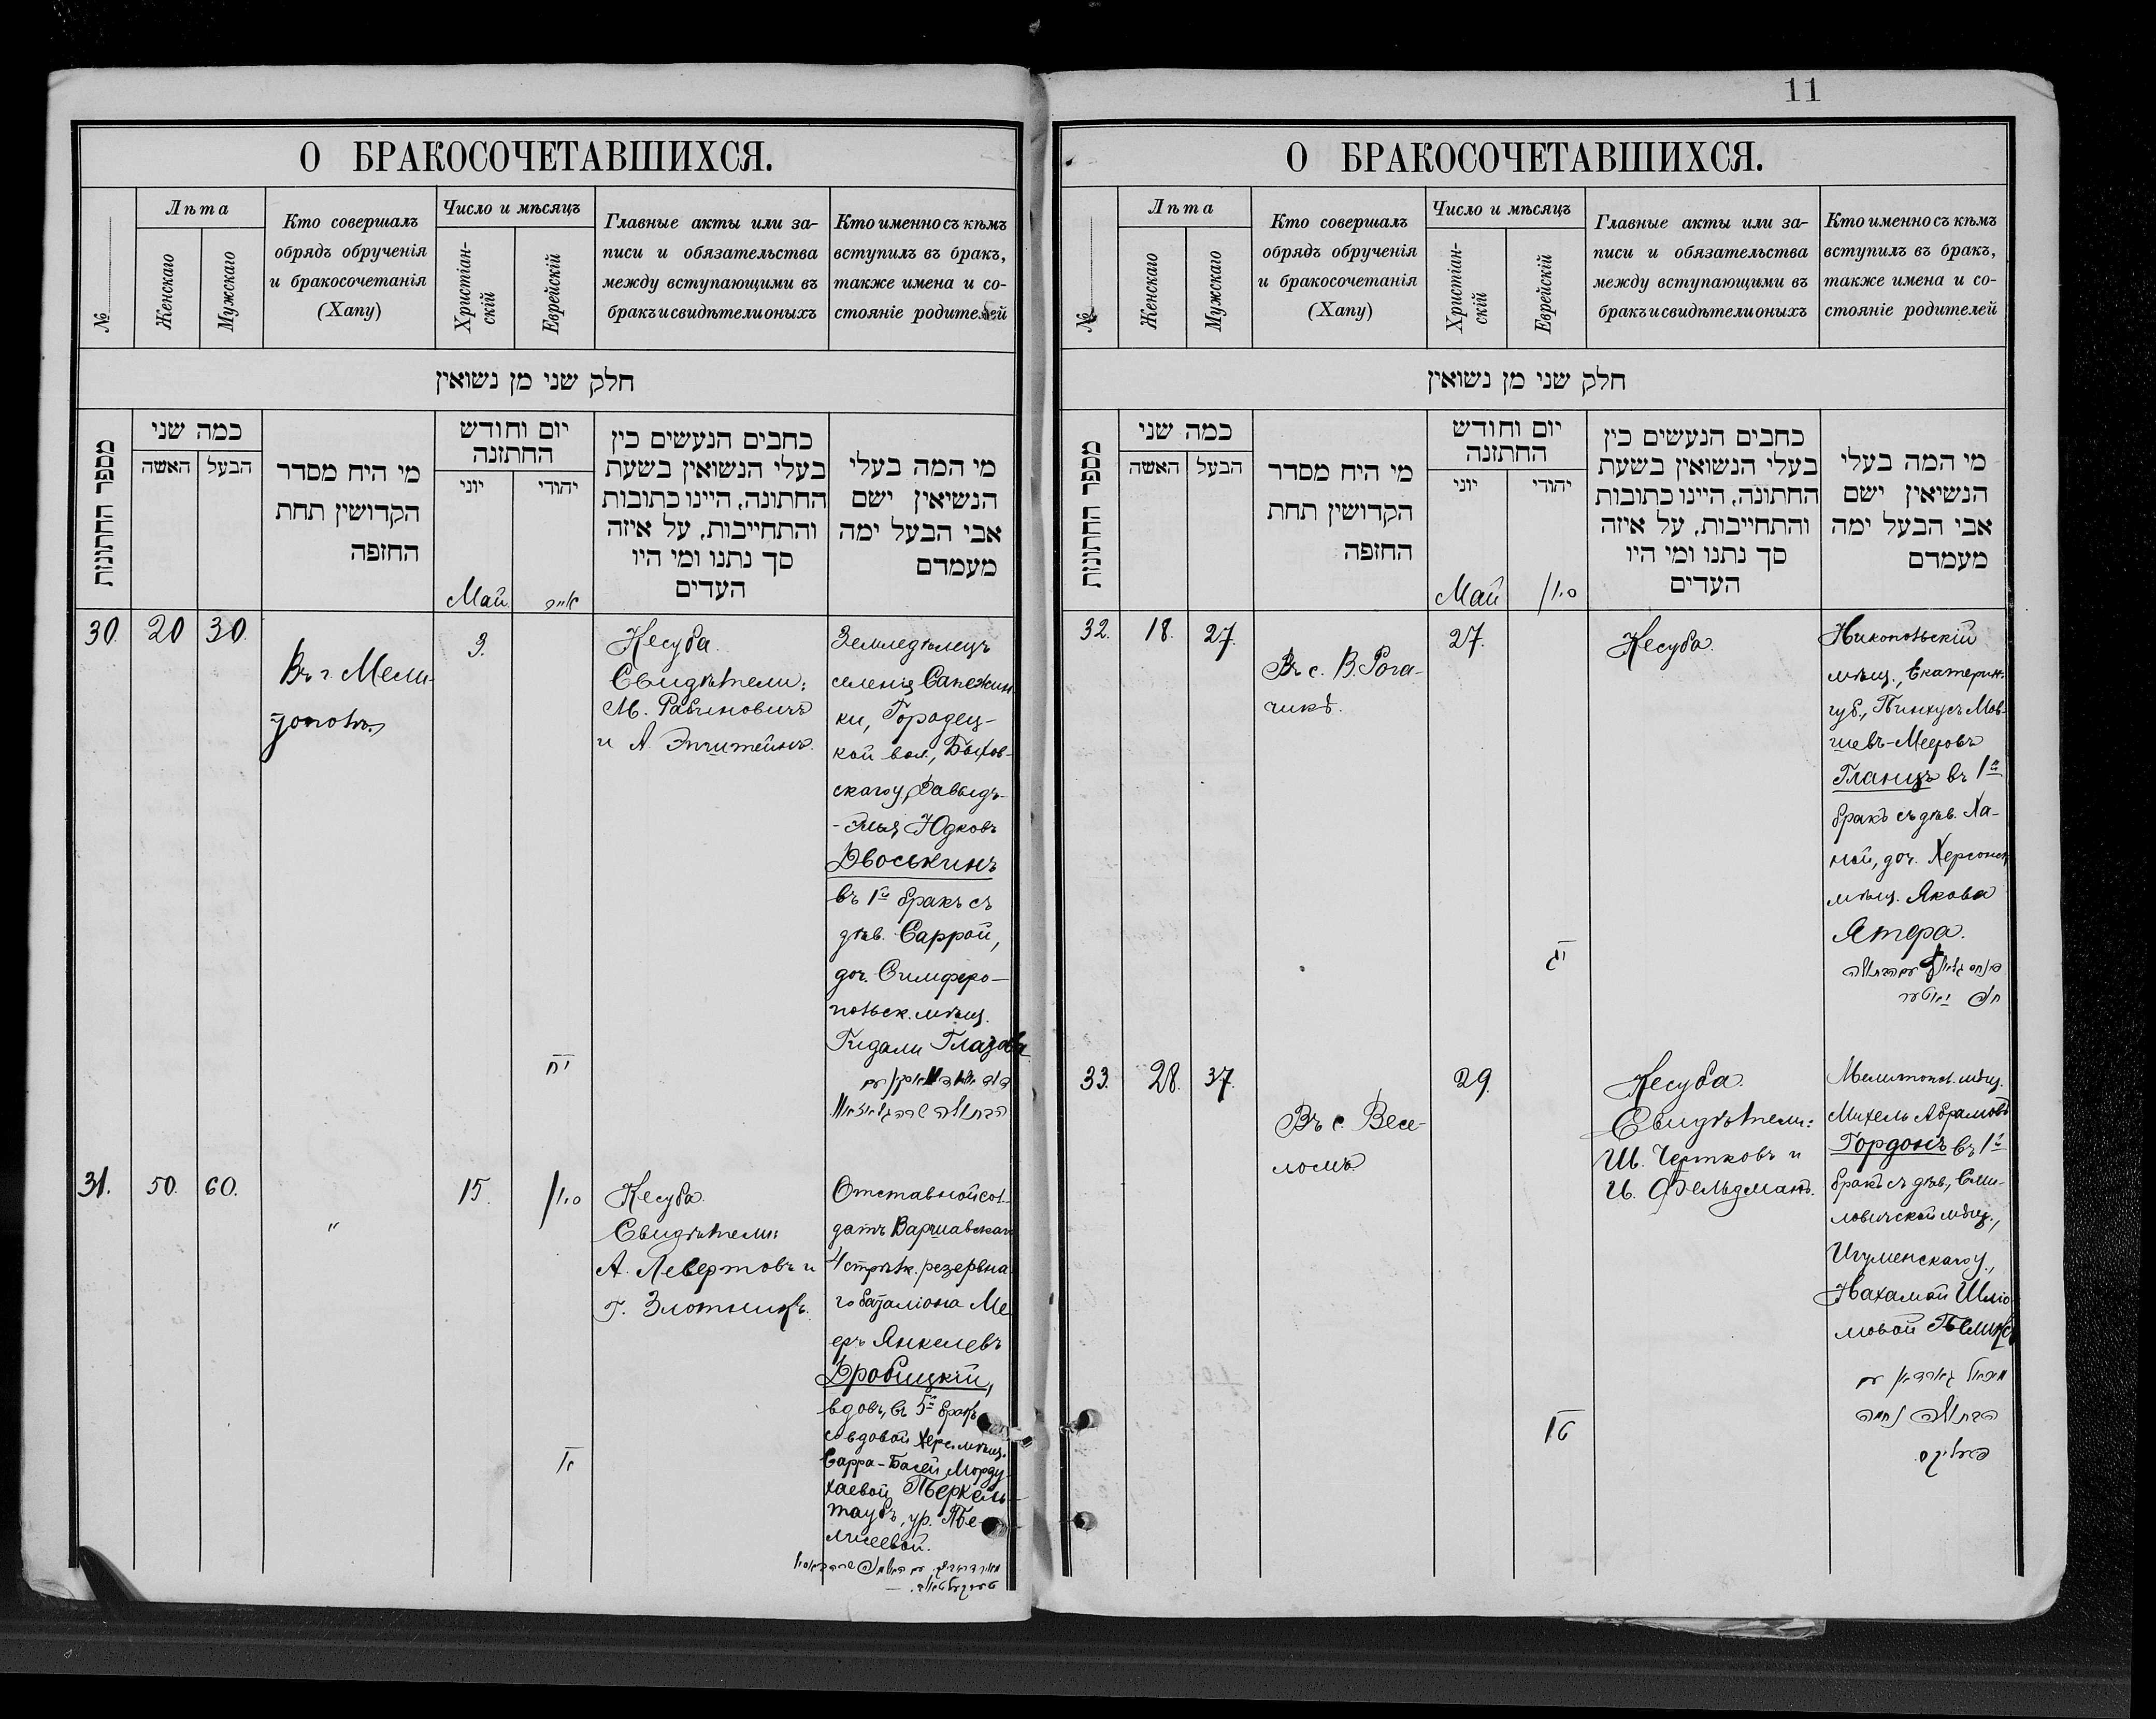 11
О БРАКОСОЧЕТАВШИХСЯ.
№
Лѣта
Женскаго
Мужскаго
Кто совершалъ
обрядъ обрученія
и бракосочетанія
(Хапу)
Число и мѣсяцъ
Христіан-
скій
Еврейскій
Главные акты или за-
писи и обязательства
между вступающими въ
бракъ и свидѣтели оныхъ
Кто именно съ кѣмъ
вступилъ въ бракъ,
также имена и со-
стояніе родителей
חלק שני מן נשואין
מספר החתונות
כמה שני
האשה
הבעל
מי היח מסדר
הקדושין תחת
החופה
יום וחודש
החתונה
יוני
יהודי
Май
אייר
כתבים הנעשים כין
בעלי הנשואין בשעת
החתונה, היינו כתובות
והתחייבות, על איזה
סך נתנו ומי היו
העדים
מי המה בעלי
הנשיאין ישם
אבי הבעל ימה
מעמדם
30.
20
30.
Въ г. Мели-
тополѣ
3.
יח
Кесуба.
Свидѣтели:
М. Рабиновичъ
и А. Эпштейнъ.
Земледѣлецъ
селенія Сапежин-
ки, Городец-
кой вол., Быхов-
скаго у, Давыдъ-
-Элья Юдковъ
Двоськинъ
въ 1й бракъ съ
дѣв. Саррой,
доч. Симферо-
польск. мѣщ.
Гидали Глазова
31.
50.
60.
"
15.
סיון
א
Кесуба.
Свидѣтели:
А. Левертовъ и
Г. Злотникъ.
Отставной сол-
датъ Варшавскаго
4 стрѣлк. резервна
го баталіона Ме
еръ Янкелевъ
Дробицкій,
вдовъ, въ 5й бракъ
со вдовой Херс. мѣщ.
Сарра-Басей Морду-
хаевой Теркель-
таубъ, ур. Бе-
лисевой.
О БРАКОСОЧЕТАВШИХСЯ.
№
Лѣта
Женскаго
Мужскаго
Кто совершалъ
обрядъ обрученія
и бракосочетанія
(Хапу)
Число и мѣсяцъ
Христіан-
скій
Еврейскій
Главные акты или за-
писи и обязательства
между вступающими въ
бракъ и свидѣтели оныхъ
Кто именно съ кѣмъ
вступилъ въ бракъ,
также имена и со-
стояніе родителей
חלק שני מן נשואין
מספר החתונות
כמה שני
האשה
הבעל
מי היח מסדר
הקדושין תחת
החופה
יום וחודש
החתונה
יוני
יהודי
Май
סיון
כתבים הנעשים כין
בעלי הנשואין בשעת
החתונה, היינו כתובות
והתחייבות, על איזה
סך נתנו ומי היו
העדים
מי המה בעלי
הנשיאין ישם
אבי הבעל ימה
מעמדם
32.
18.
27.
Въ с. В. Рога-
чикѣ.
27.
יג
Кесуба.
Никопольскій
мѣщ., Екатерин.
губ., Пинхусъ Мов-
шевъ-Мееровъ
Гланцъ въ 1й
бракъ съ дѣв. Ха-
ной, доч. Херсонск
мѣщ. Якова
Ятера.
33.
28.
37.
Въ с. Весе-
ломъ
29.
טו
Кесуба.
Свидѣтели:
Ш. Чертковъ и
И. Фельдманъ.
Мелитопол. мѣщ.
Михель Абрамовъ
Гордонъ въ 1й
бракъ съ дѣв., Сми-
ловичской мѣщ.,
Игуменскаго у.,
Нахамой Шлио-
мовой
מיכאל גארדאן עם
הבתולה נחמה